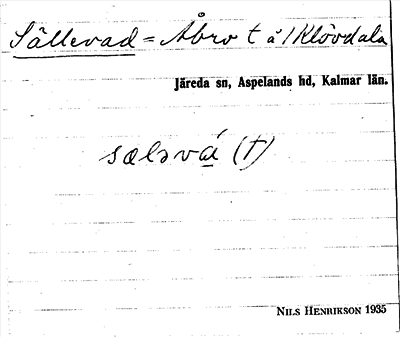 Sällevad = Åbro t å / Klövdala
Järeda sn, Aspelands hd, Kalmar län.
sæləvá (t)
NILS HENRIKSON 1935